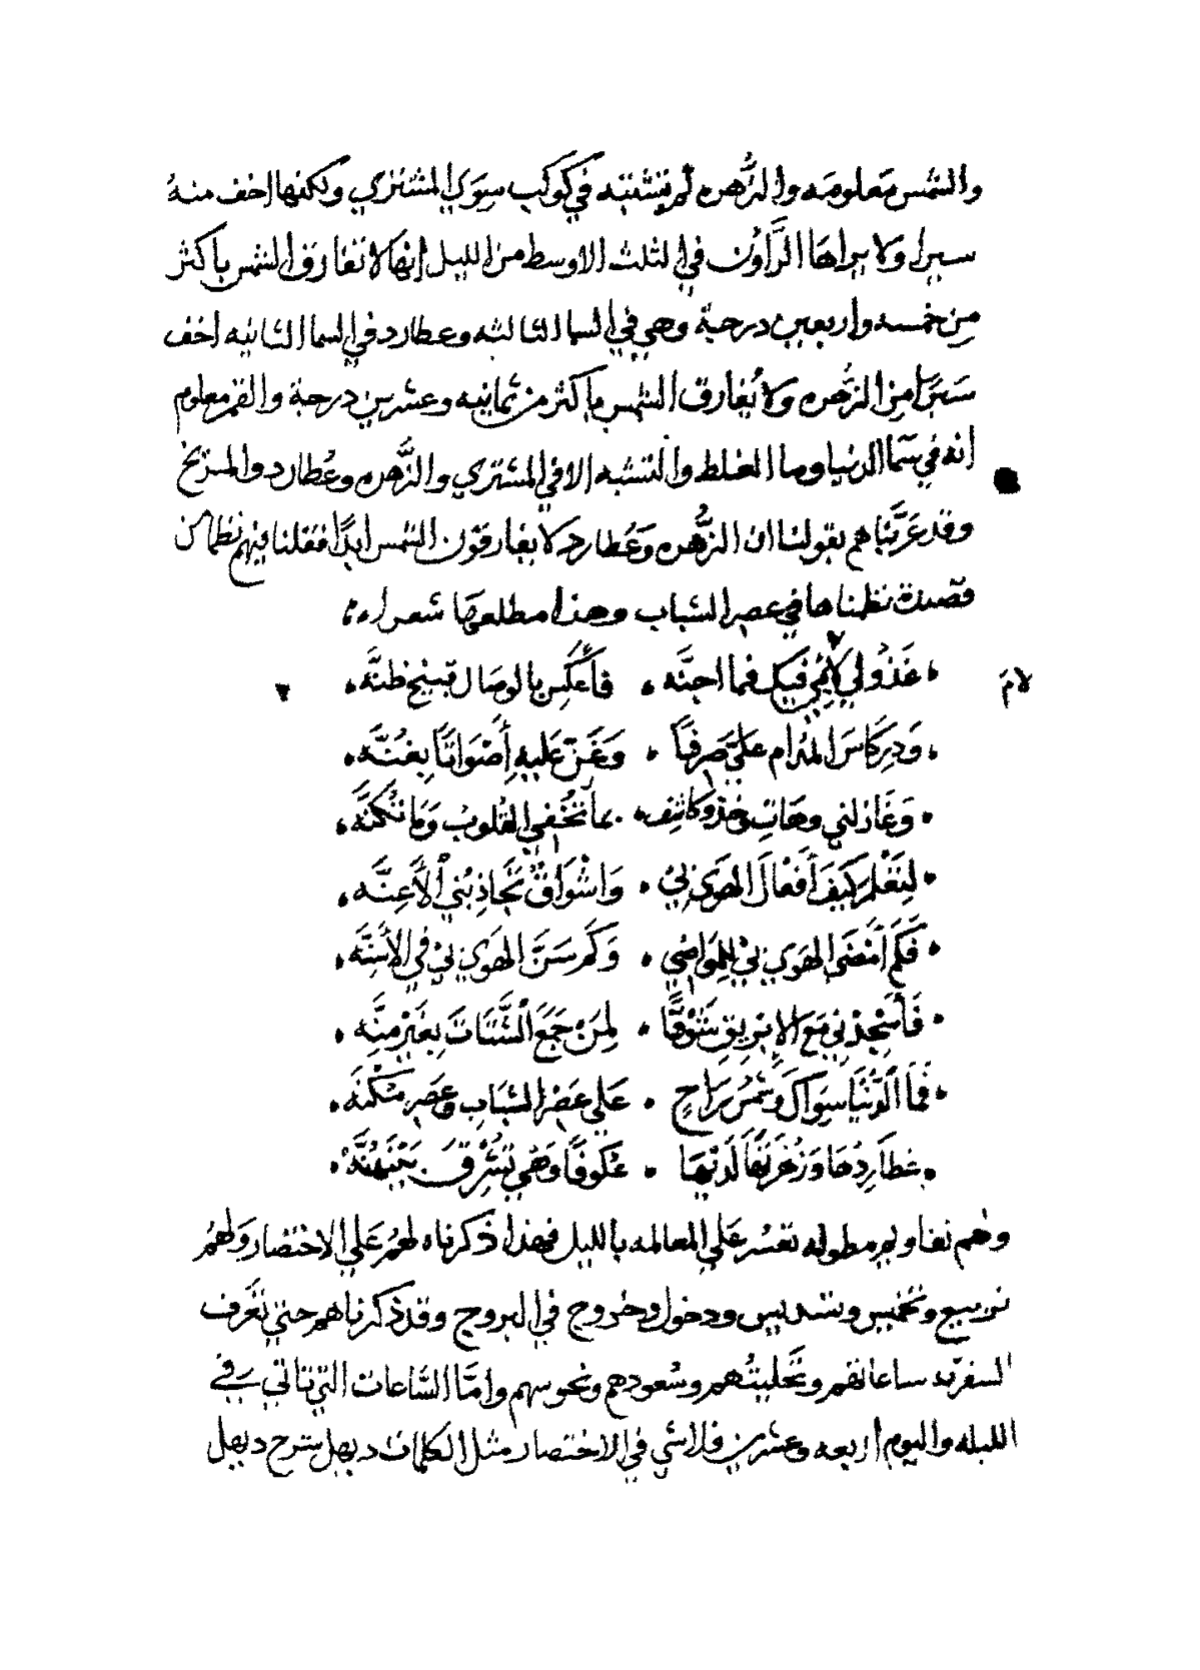 والشمس معلومه والزُّهره لم تشتبه في كوكب سِوَي المشتري ولكنها اخف منهُ
سيرا ولا يراهَا الرَّاوُن في الثلث الاوسط من الليل إنها لا تفارق الشمس باكثر
مِن خمسه واربعين درجة وهي في السما الثالثه وعطارد في السما الثانيه اخف
سَيرًا من الزُّهره ولا يُفارق الشمس باكثر من ثمانيه وعشرين درجة والقمر معلوم
انه في سَما الدنيا وما الغلط والتشبه الا في المشتري والزُّهره وعُطارد والمريخ
وقد عرَّفناهم بقولنا ان الزُّهره وعُطارد لا يفارقون الشمس ابدًا فقلنا فيهم نظما من
قصيدة نظمناها في عصر الشباب وهذا مطلعها شعر
عَذُولي لَائِمي فيكِ فما احبَّه ، فأعكِس بالوصَال قبيح ظنَّه ،
لامَ
، وَدِر كاسَ المُدام عليَّ صرفًا ، وَغَنّ عَليهِ أصْوَاتًا بِغُنَّه ،
، وَغَازلني وهَاتِ وخذ وكاشِف ، بما تُخفي القلوبُ وَمَا تُكنَّه ،
، لِتَعْلم كَيفَ أفعْالَ الهَوَي بي ، وَاشْوَاقٌ تُجَاذِبُني الأَعِنَّه ،
، فَكَم أمْضَي الهَوَي بي المَوَاضِي ، وَكَم سَنَّ الهَوَي بي في الأسِنَّه ،
، فَأسجُد لي مَعَ الابريقِ شَوْقًا ، لِمَن جَمَعَ الشَّتاتَ بِغَيرِ مِنَّه ،
، فَمَا الدُّنْيَا سِوَاكَ وشمسُ رَاحٍ ، عَلي عَصْرِ الشَبَابِ وعَصر
، عُطارِدُهَا وَزُهْرَتُهَا لَدَيْهَا ، عكُوفًا وَهْي تُشرقُ
وَلهم تفاويم مطوله تعسُر عَلي المعالمه بالليل فهذا ذكرناه لهم عَلي الاختصار وَلهمُ
تربيع وتخميس وتسديس ودخول وخروج في البروج وقد ذكرناهم حتي تعُرف
السفريه ساعاتهم وتَحليتُهم وسُعودهم ونحوسهم وامَّا السَّاعات التي تاتي في
الليله واليوم اربعه وعشرين فلا شي في الاختصار مثل الكلمات دبهل سَرح دبهل